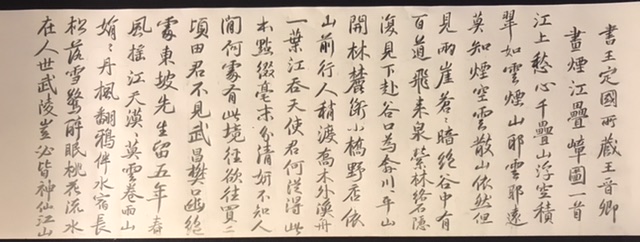 書王定國所藏王晉卿
畫煙江疊嶂圖一首
江上愁心千疊山浮空積
翠如雲煙山耶雲耶遠
莫知煙空雲散山依然但
見兩崖蒼〻暗絕谷中有
百道飛來泉縈林絡石隱
復見下赴谷口為奔川平山
開林麓斷小橋野店依
山前行人稍渡喬木外漁舟
一葉江吞天使君何從得此
本點綴毫末分清妍不知人
間何處有此境徑欲往買二
頃田君不見武昌樊口幽絕
處東坡先生留五年春
風搖江天漠〻暮雲卷雨山
娟〻丹楓翻鴉伴水宿長
松落雪驚醉眠桃花流水
在人世武陵豈必皆神仙江山